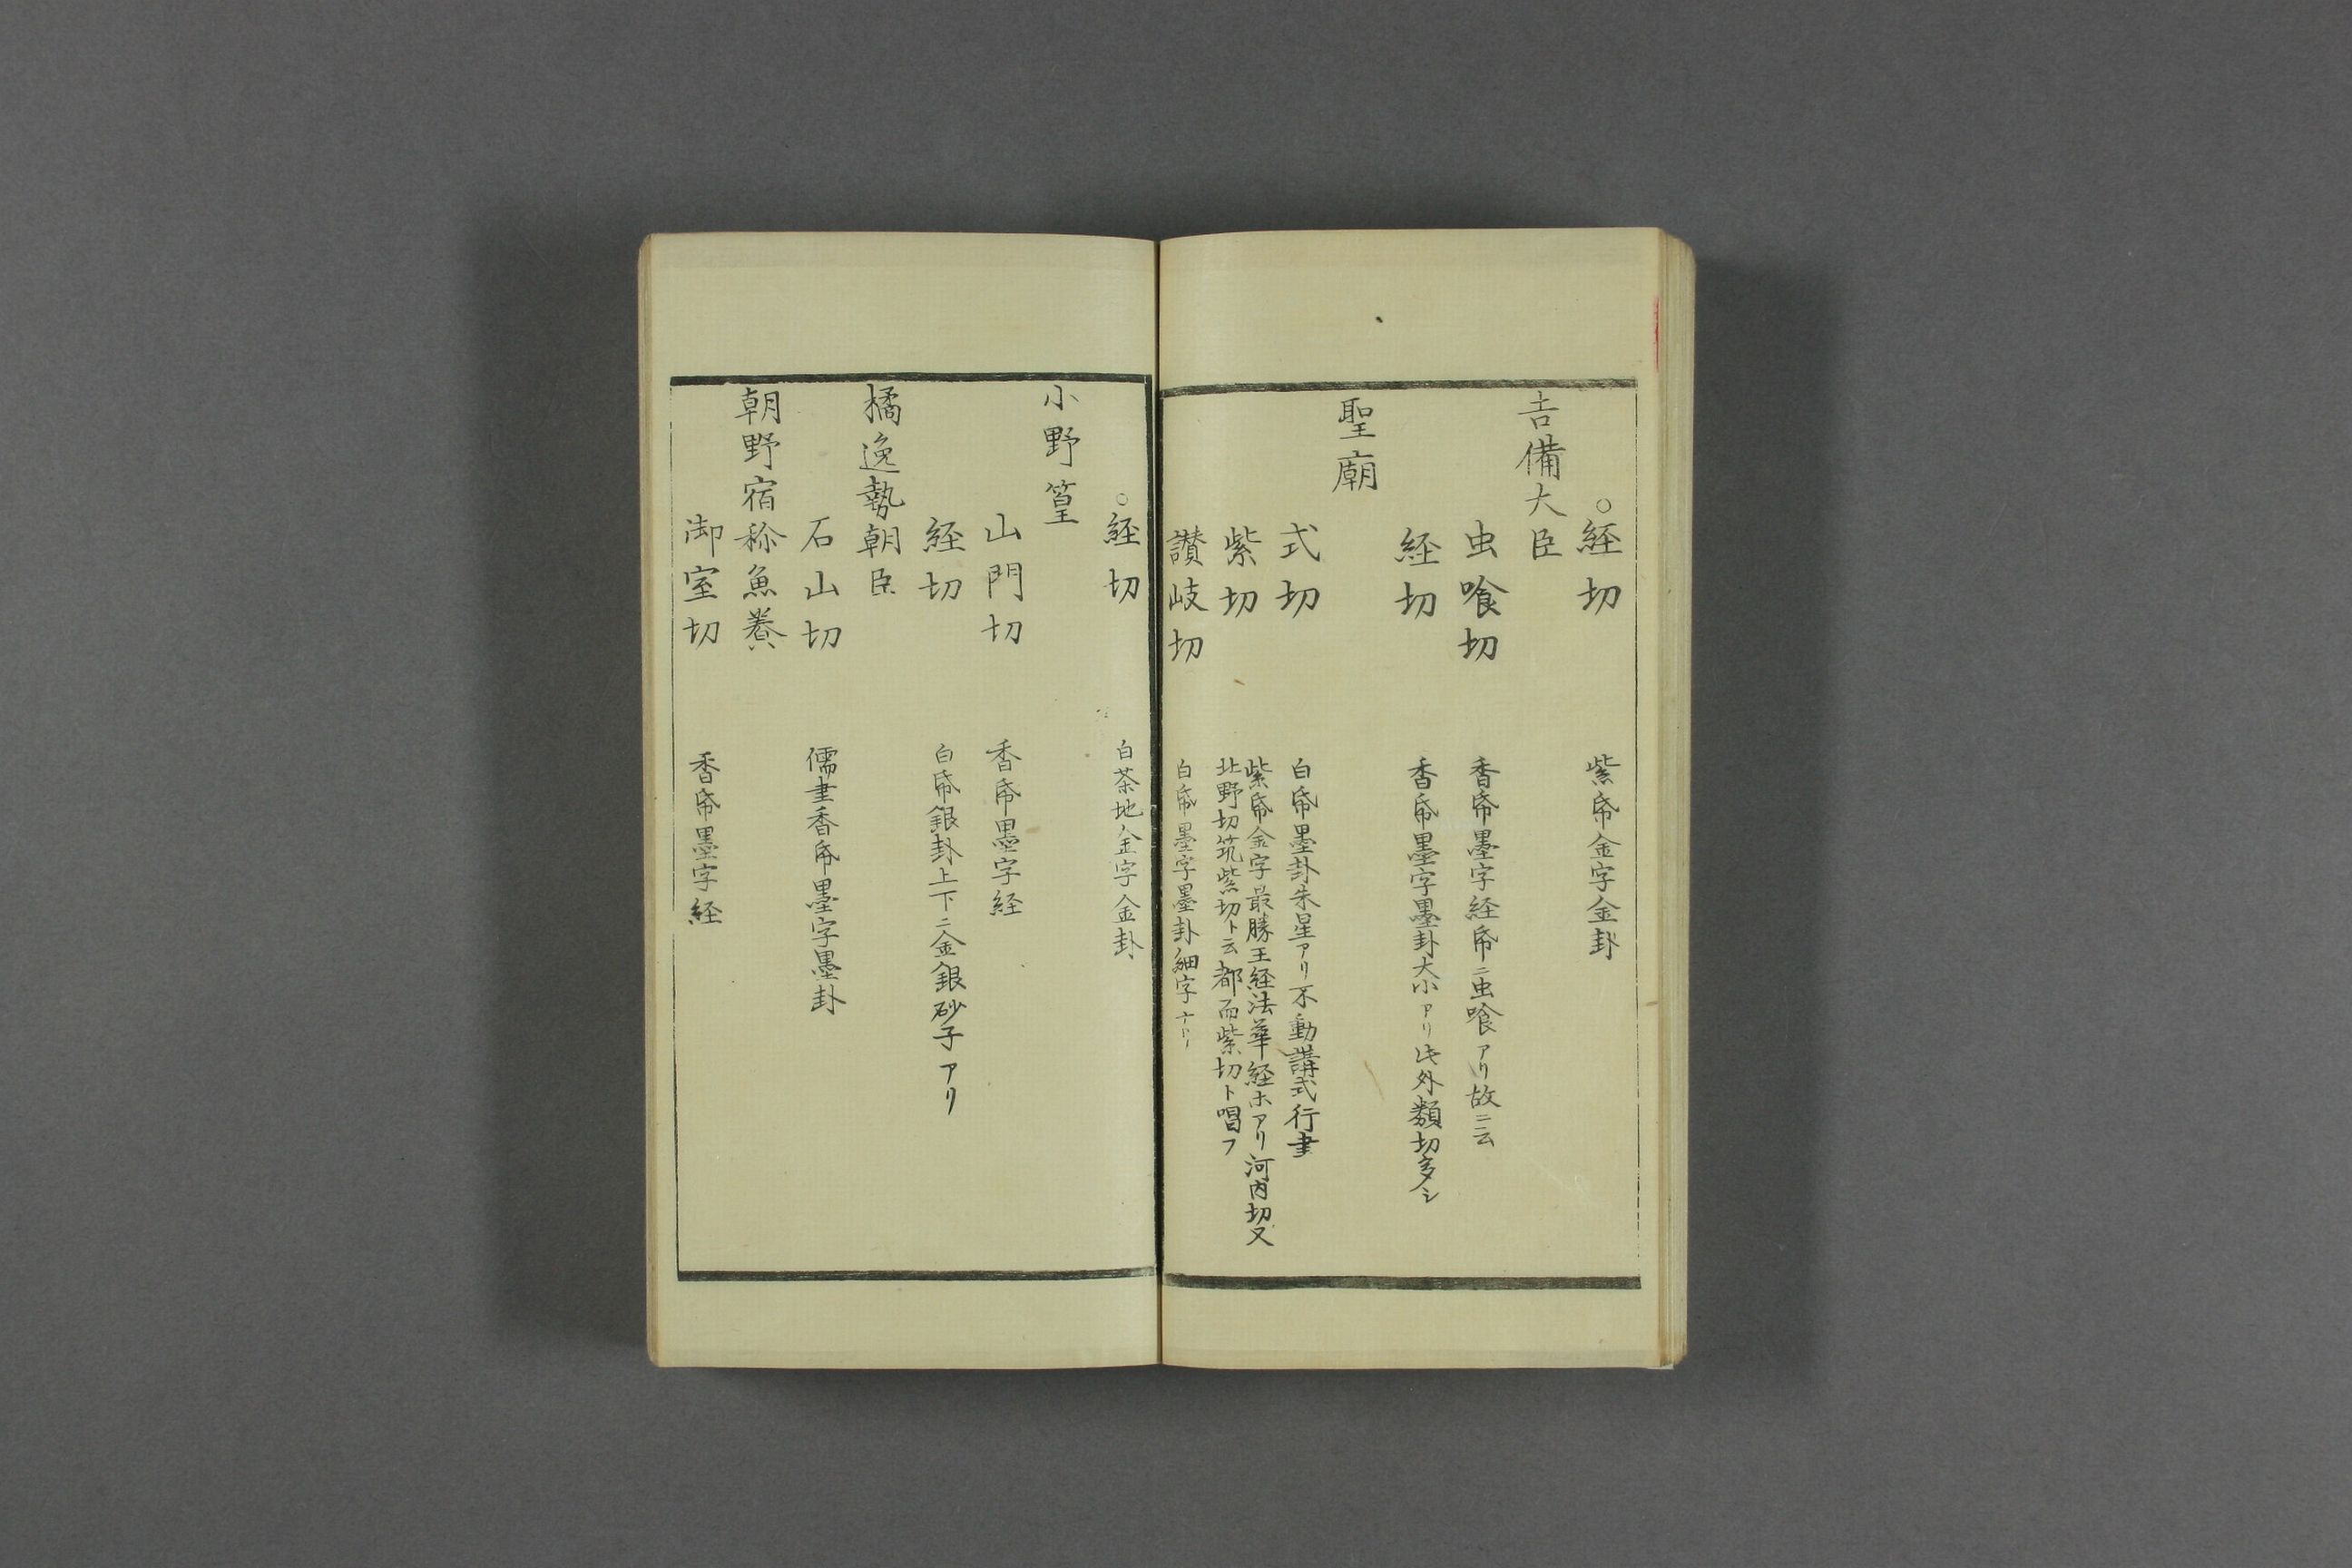 ○経切 紫帋金字金卦
吉備大臣
虫喰切 香帋墨字経帋ニ虫喰アリ故ニ云
経切 香帋墨字墨卦大小アリ此外類切多シ
聖廟
式切 白帋墨卦朱星アリ不動講式行書
紫切 紫帋金字最勝王経法華経ホアリ河内切又
北野切筑紫切ト云都而紫切ト唱フ
讃岐切 白帋墨字墨卦細字ナリ
○経切 白茶地金字金卦
小野篁
山門切 香帋墨字経
経切 白帋銀卦上下ニ金銀砂子アリ
橘逸勢朝臣
石山切 儒書香帋墨字墨卦
朝野宿祢魚養
御室切 香帋墨字経